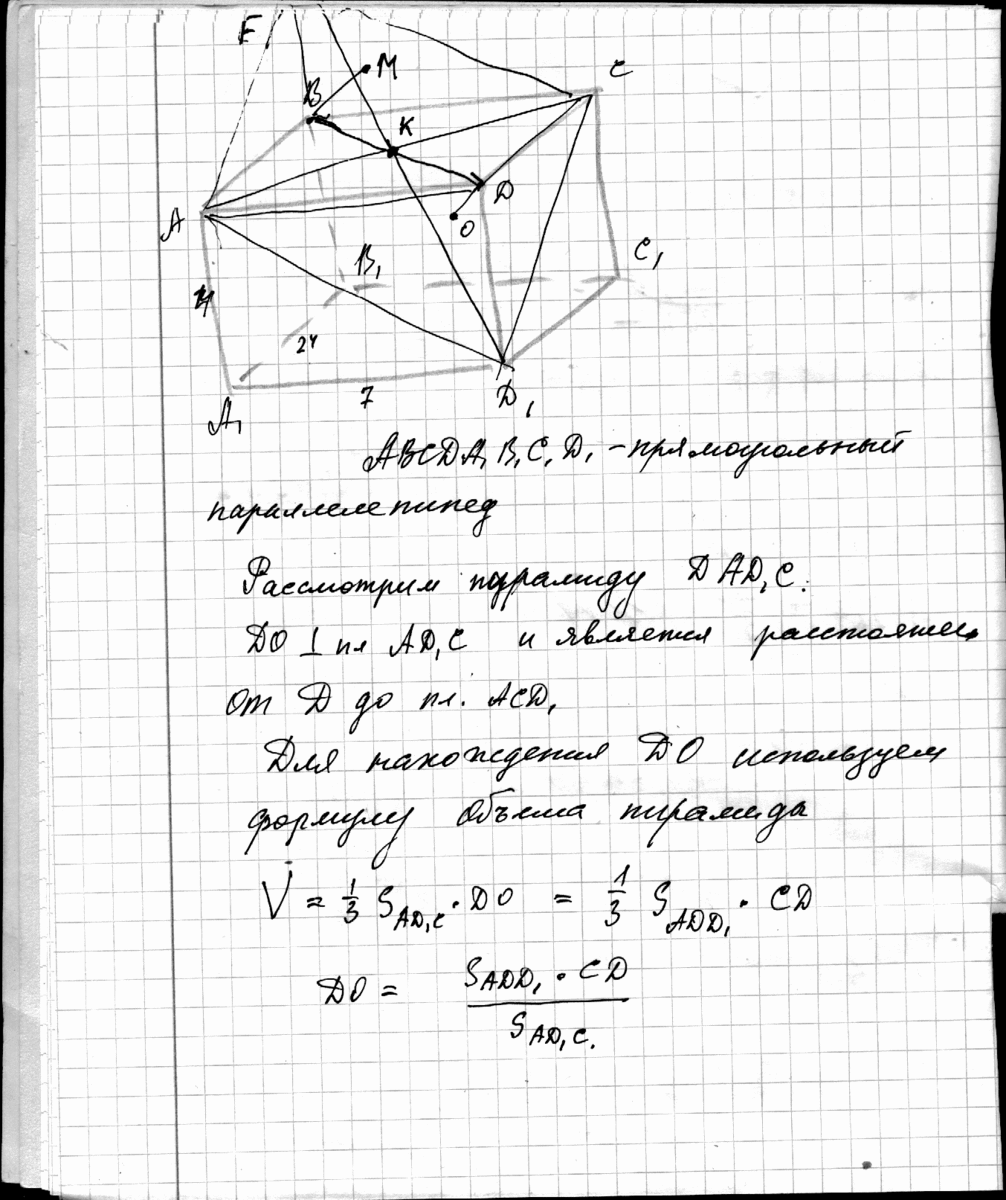 E
M
B
C
K
A
D
O
B₁
C₁
24
7
D₁
A₁
ABCDA₁B₁C₁D₁ - прямоугольный
параллелепипед
Рассмотрим пирамиду DAD₁C.
DO ⊥ пл AD₁C и является расстоянием
от D до пл. ACD₁
Для нахождения DO используем
формулу объема пирамиды
V = 1/3 S_AD₁C · DO = 1/3 S_ADD₁ · CD
DO = S_ADD₁ · CD / S_AD₁C.